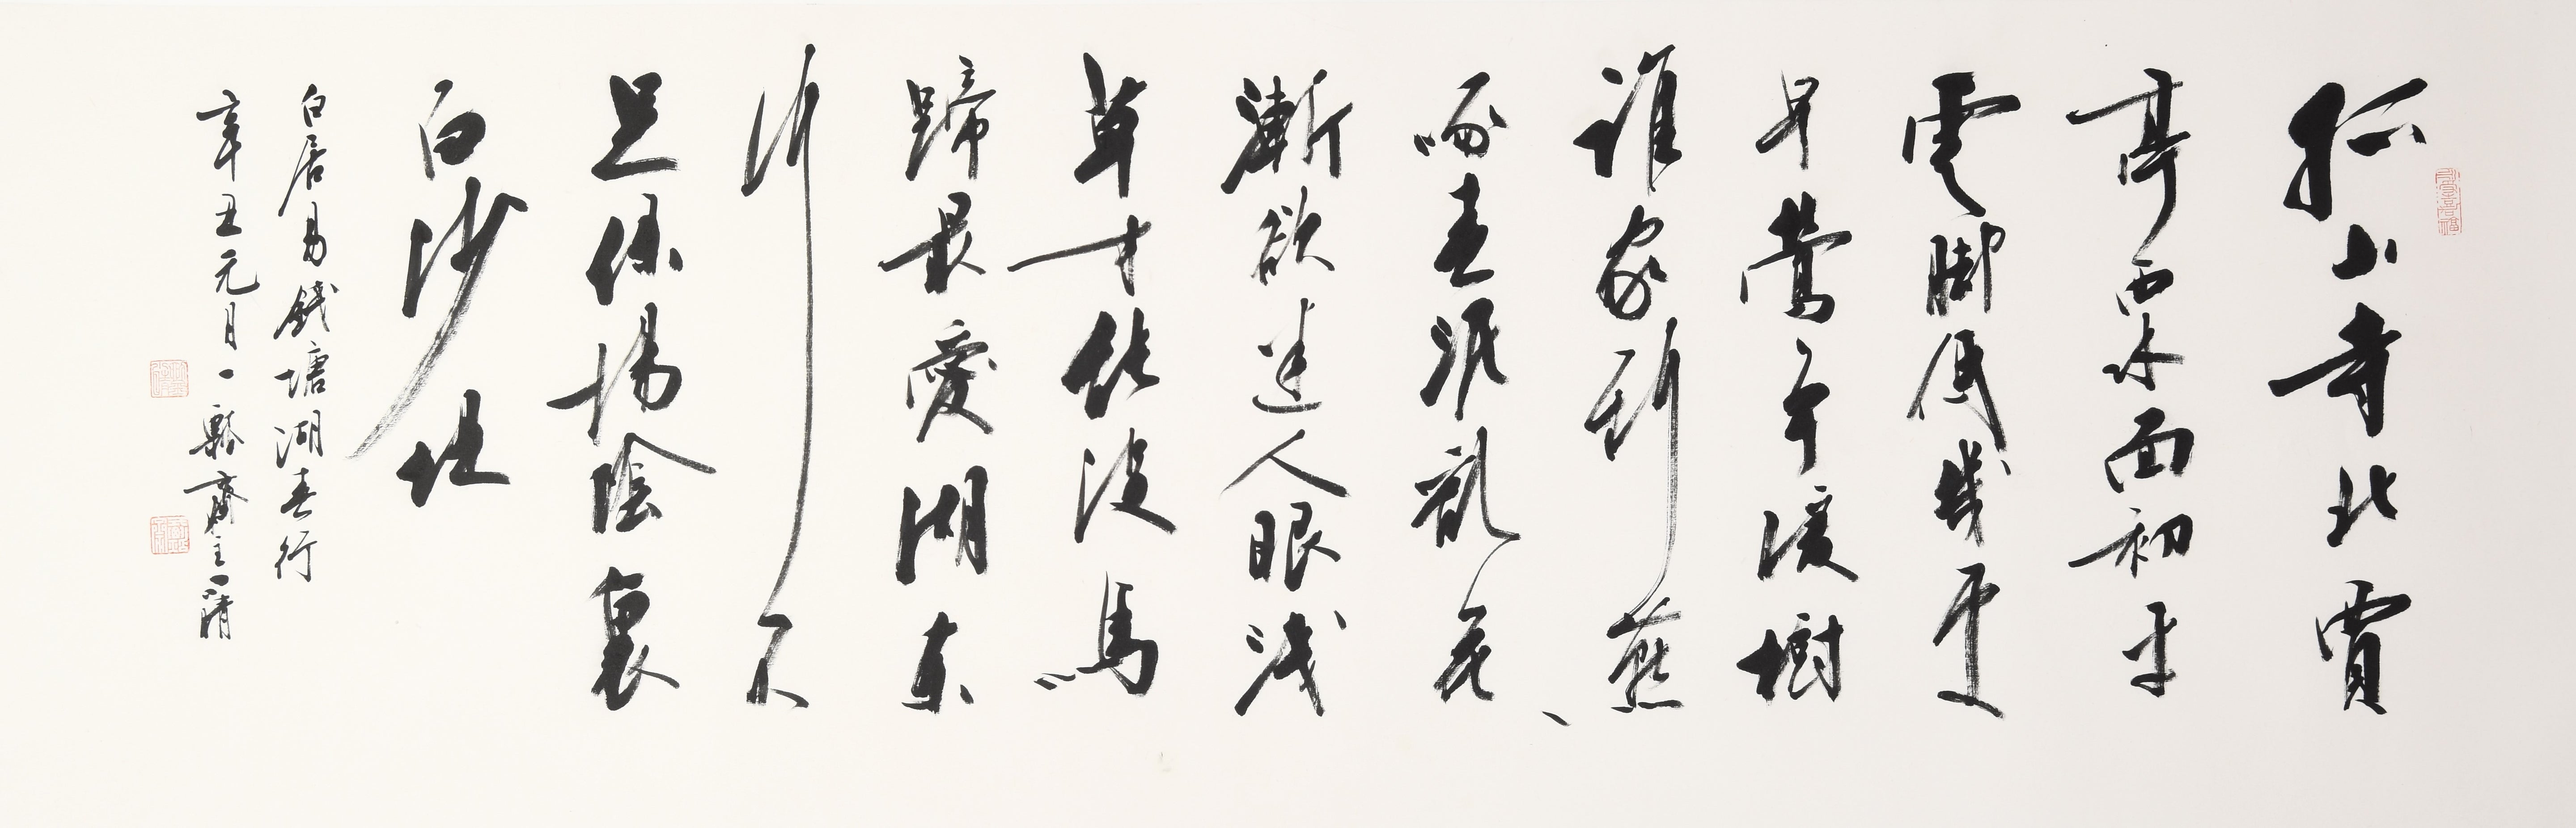 孤山寺北賈
亭西水面初平
雲脚低幾處
早鶯争暖樹
誰家新燕
啄春泥亂花
漸欲迷人眼淺
草才能沒馬
蹄最愛湖東
行不
足綠楊陰裏
白沙堤
白居易錢塘湖春行
辛丑元月一瓢齋主一晴